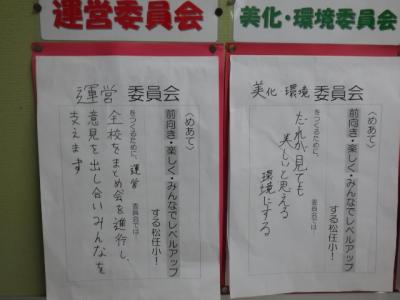 運営委員会
運営 委員会
〈めあて〉
前向き・楽しく・みんなでレベルアップ
する松任小！
をつくるために、運営 委員会では…
全校をまとめ会を進行し、
意見を出し合いみんなを
支えます
美化・環境委員会
美化 環境 委員会
〈めあて〉
前向き・楽しく・みんなでレベルアップ
する松任小！
をつくるために、 委員会では…
だれが見ても
美しいと思える
環境にする